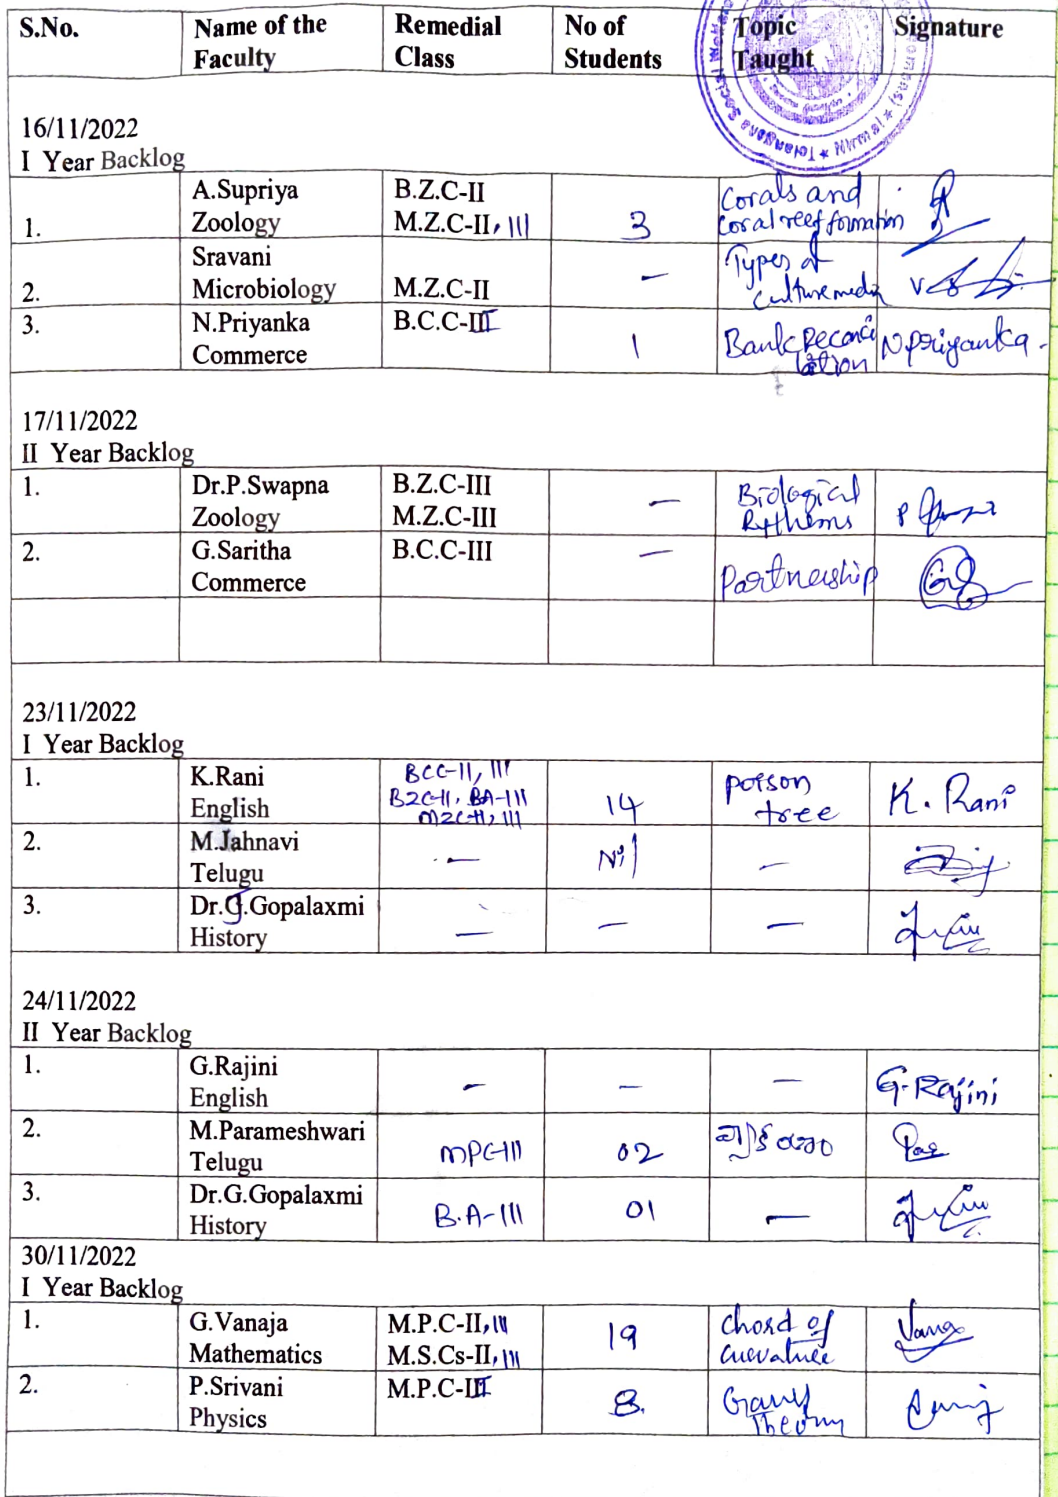 S.No. Name of the Faculty Remedial Class No of Students Topic Taught Signature
16/11/2022
I Year Backlog
1. A.Supriya Zoology B.Z.C-II M.Z.C-II, III 3 Corals and coral reef formation
2. Sravani Microbiology M.Z.C-II - Types of culture media
3. N.Priyanka Commerce B.C.C-III 1 Bank Reconciliation N Priyanka.
17/11/2022
II Year Backlog
1. Dr.P.Swapna Zoology B.Z.C-III M.Z.C-III - Biological Rythems
2. G.Saritha Commerce B.C.C-III - Partnership
23/11/2022
I Year Backlog
1. K.Rani English BCC-II, III BZC-II, BA-III MZC-II, III 14 poison tree K. Rani
2. M.Jahnavi Telugu - Nil -
3. Dr.G.Gopalaxmi History - - -
24/11/2022
II Year Backlog
1. G.Rajini English - - - G.Rajini
2. M.Parameshwari Telugu MPC-III 02
3. Dr.G.Gopalaxmi History B.A-III 01 -
30/11/2022
I Year Backlog
1. G.Vanaja Mathematics M.P.C-II, III M.S.Cs-II, III 19 chord of curvature
2. P.Srivani Physics M.P.C-III 8. Theory